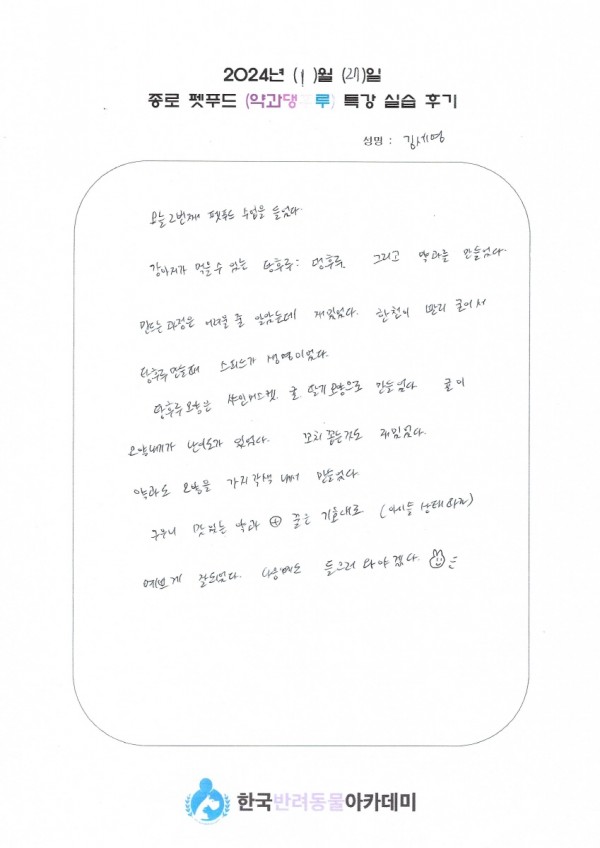 2024년 (1)월 (27)일
종로 펫푸드 (약과댕 루) 특강 실습 후기
성명 : 김세영
오늘 2번째 펫푸드 수업을 들었다.
강아지가 먹을 수 있는 탕후루: 멍후루, 그리고 약과를 만들었다.
만드는 과정은 어려울 줄 알았는데 재밌었다. 한천이 빨리 굳어서
탕후루 만들때 스피드가 생명이었다.
탕후루 모양은 샤인머스켓, 귤, 딸기 모양으로 만들었다 귤이
모양내기가 난이도가 있었다. 꼬치 꽂는것도 재밌었다.
약과도 모양을 가지각색 내서 만들었다.
구우니 맛있는 약과 ⊕ 줄은 기호대로
예쁘게 잘되었다. 다음번에도 들으러 와야겠다.
한국반려동물아카데미